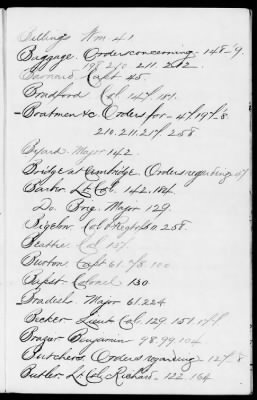 Billing Wm 41
Baggage. Orders concerning - 148-9.
198. 211. 212.
Barnard Capt 45.
Bradford Col 147. 181.
- Boatmen &c Orders for - 47 197-8
210. 211. 217 258
Byard Major 142.
Bridge at Cambridge. Orders regarding 57
Barber Lt Col. 142. 184.
Do. Brig. Major 129.
Bigelow Col & Regt 80. 258.
Col 137.
Burton Capt 61. 100
Colonel 130
Major 61. 224
Becker Lieut Col. 129. 151.
Brazer Benjamin 98. 99. 104
Butchers Orders regarding 127-8
Butler. Lt Col. Richard. 122. 164